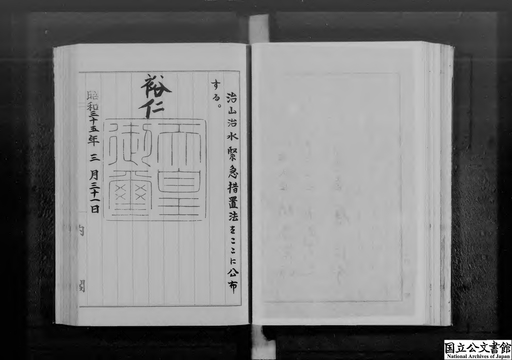 治山治水緊急措置法をここに公布
する。
裕仁
天皇
御璽
昭和三十五年三月三十一日
内閣
国立公文書館
National Archives of Japan